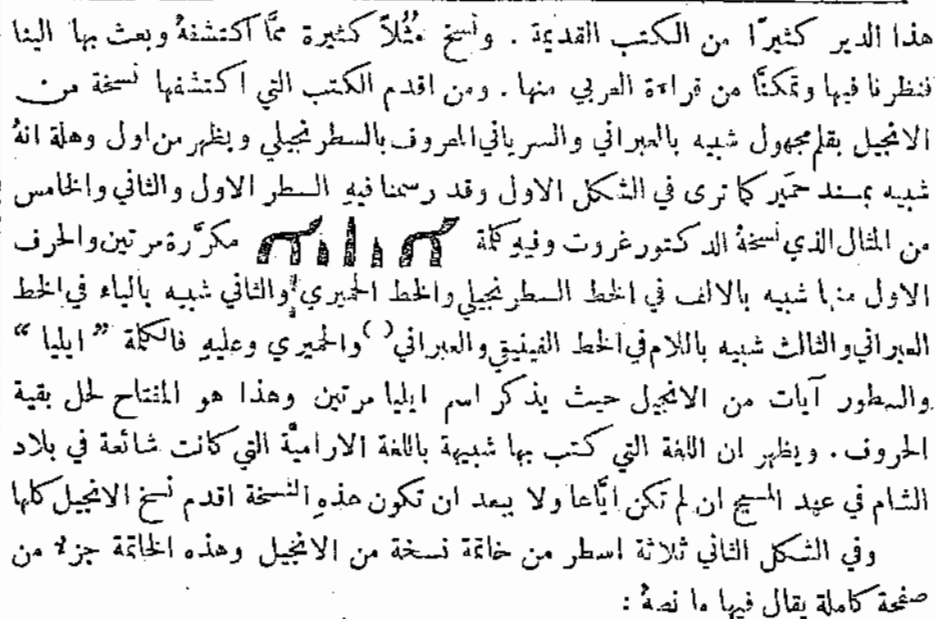 هذا الدير كثيرًا من الكتب القديمة . ونسخ مُثُلاً كثيرة ممَّا اكتشفهُ وبعث بها الينا
فنظرنا فيها وتمكنَّا من قراءة العربي منها . ومن اقدم الكتب التي اكتشفها نسخة من
الانجيل بقلم مجهول شبيه بالعبراني والسرياني المعروف بالسطر نجيلي ويظهر من اول وهلة انهُ
شبيه بمسند حمَير كما ترى في الشكل الاول وقد رسمنا فيهِ السطر الاول والثاني والخامس
من المثال الذي نسخهُ الدكتور غروت وفيهِ كلمة مكرَّرة مرتين والحرف
الاول منها شبيه بالالف في الخط السطر نجيلي والخط الحميري والثاني شبيه بالياء في الخط
العبراني والثالث شبيه باللام في الخط الفينيقي والعبراني ( ) والحميري وعليهِ فالكلمة " ايليا "
والسطور آيات من الانجيل حيث يذكر اسم ايليا مرتين وهذا هو المفتاح لحل بقية
الحروف . ويظهر ان اللغة التي كتب بها شبيهة باللغة الاراميَّة التي كانت شائعة في بلاد
الشام في عهد المسيح ان لم تكن ايَّاها ولا يبعد ان تكون هذهِ النسخة اقدم نسخ الانجيل كلها
وفي الشكل الثاني ثلاثة اسطر من خاتمة نسخة من الانجيل وهذه الخاتمة جزء من
صفحة كاملة يقال فيها ما نصهُ :